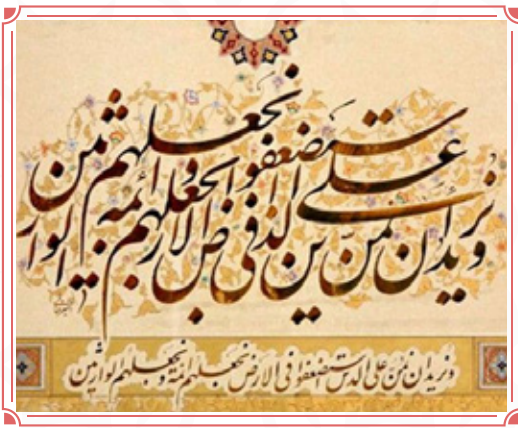 ونريد أن نمن على الذين استضعفوا في الارض نجعلهم أئمة ونجعلهم الوارثين
ونريد ان نمن على الذين استضعفوا فی الارض نجعلهم ائمة ونجعلهم الوارثین